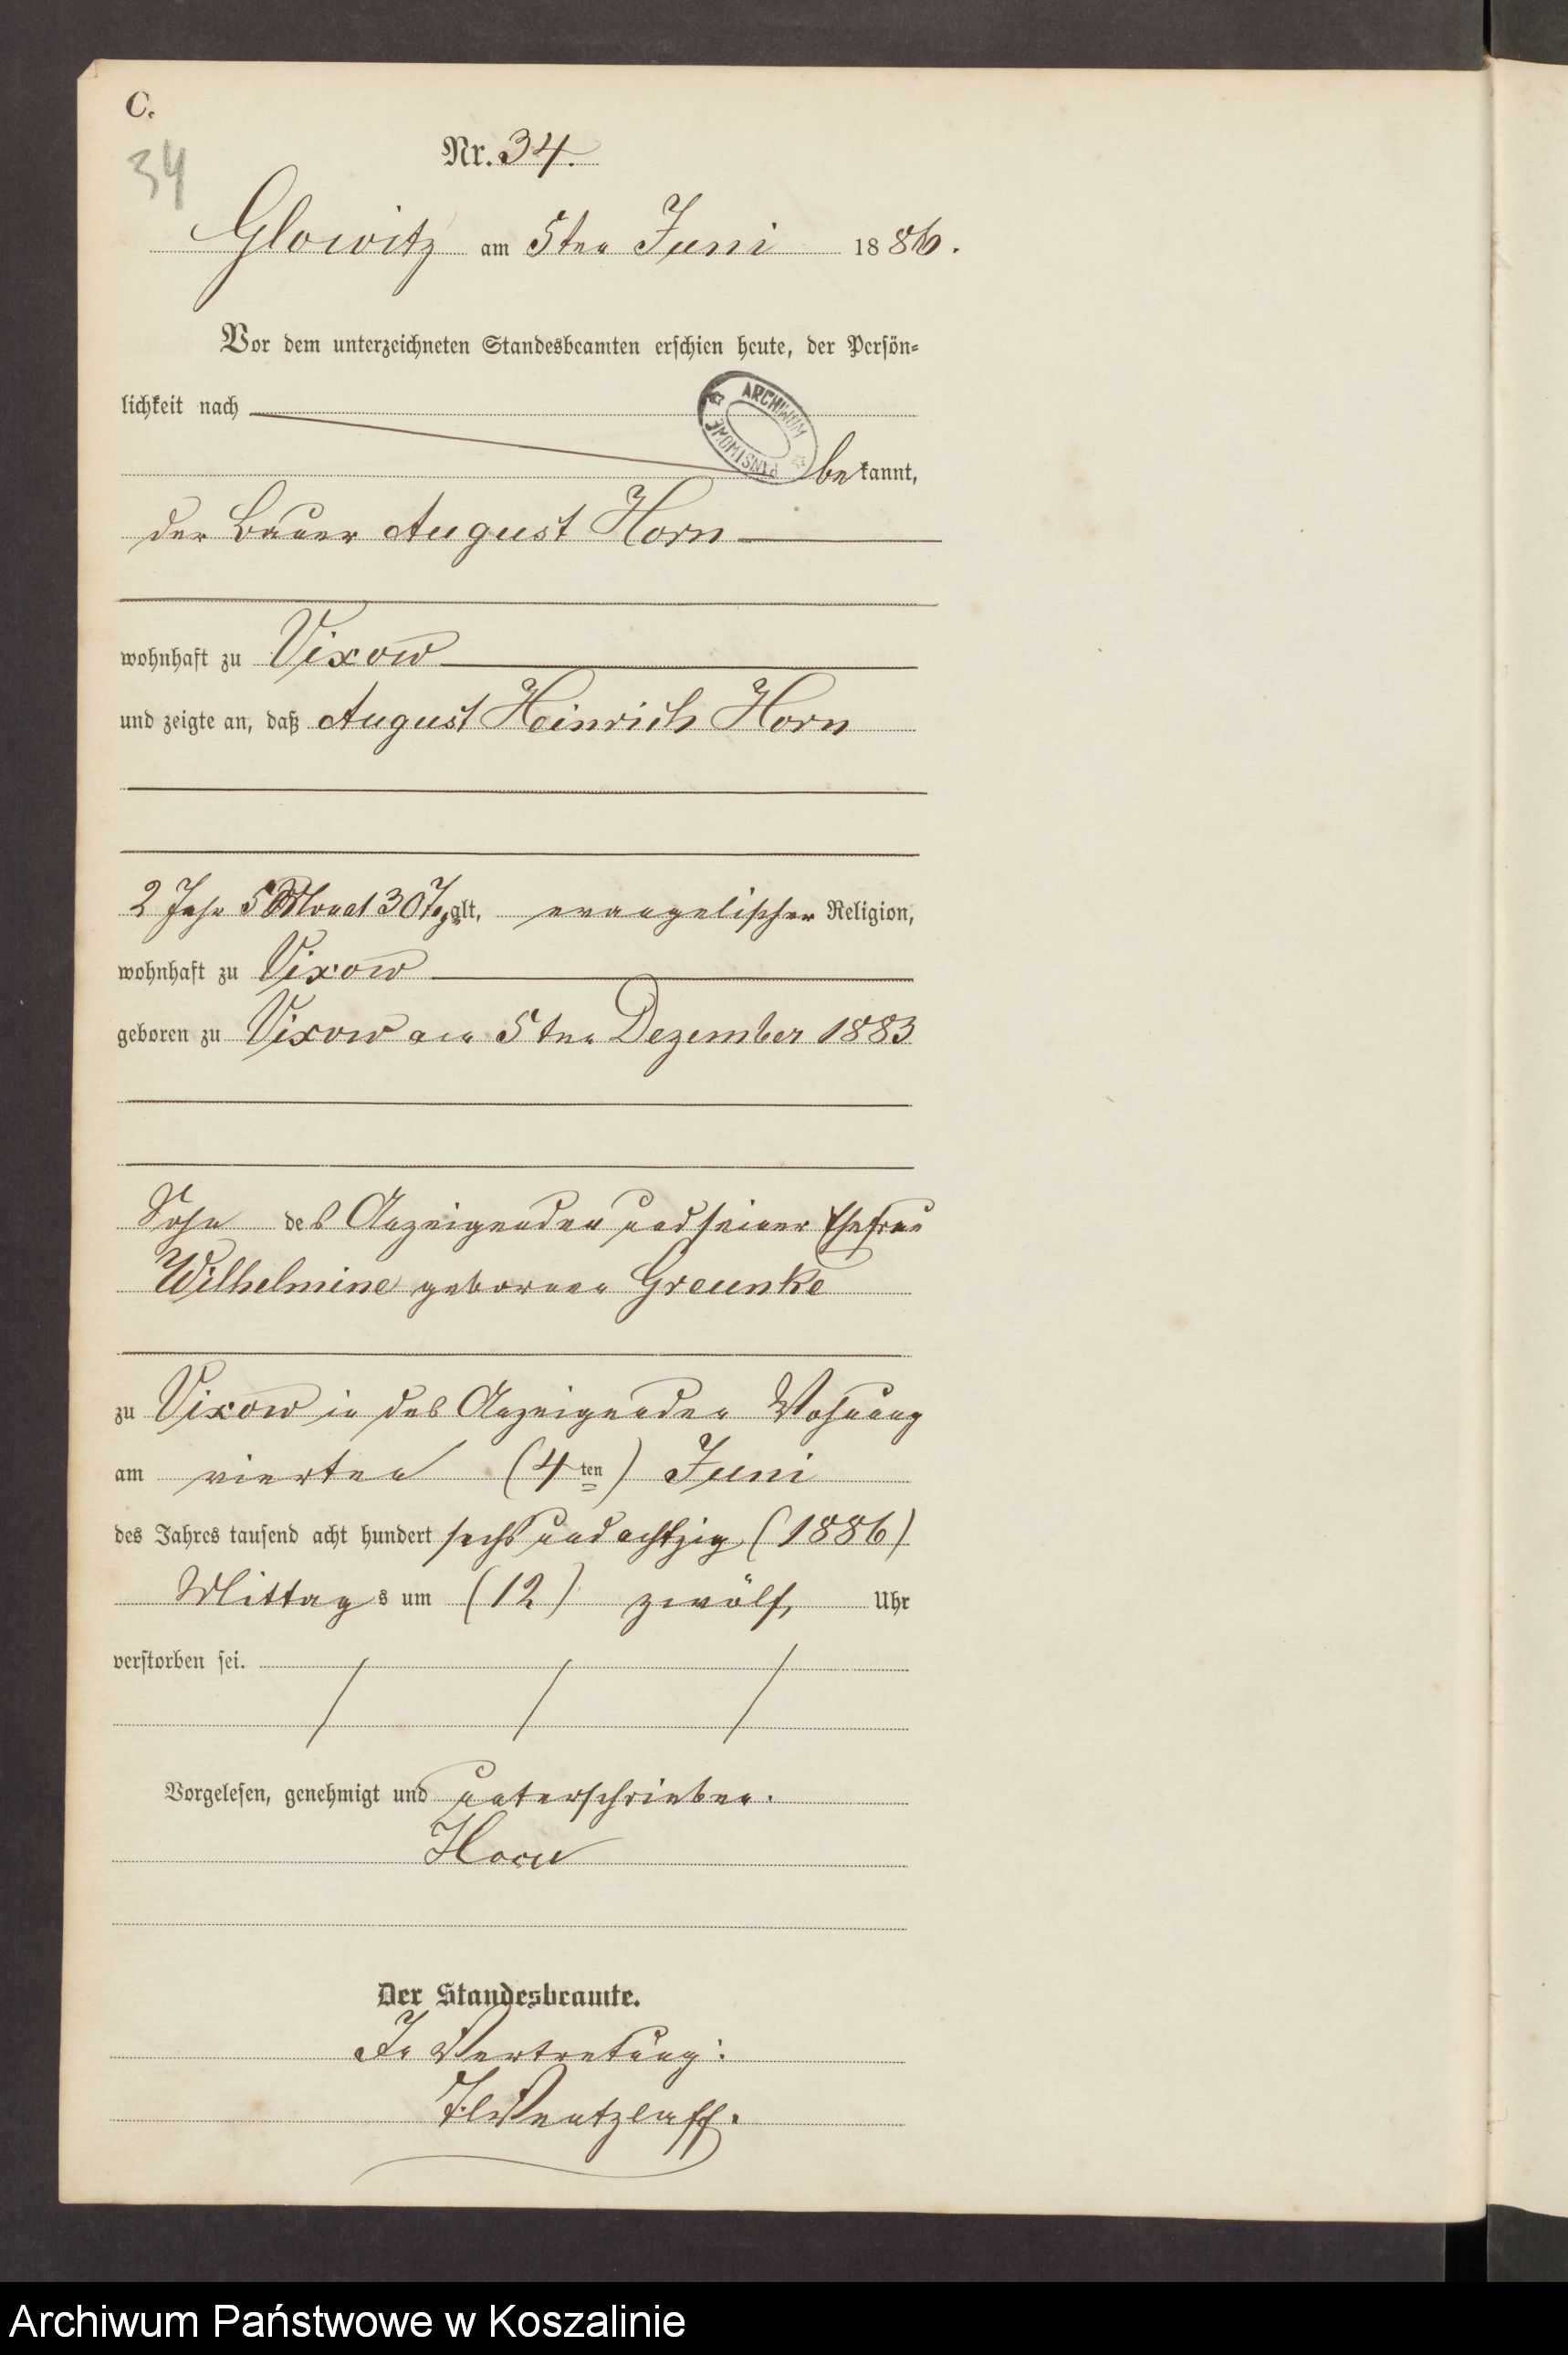 C.
34
Nr. 34.
Glowitz am 5ten Juni 1886.
Vor dem unterzeichneten Standesbeamten erschien heute, der Persön-
lichkeit nach
ARCHIWUM PAŃSTWOWE
bekannt,
der Bauer August Horn
wohnhaft zu Vixow
und zeigte an, daß August Heinrich Horn
2 Jahr 5 Monat 30 Tage alt, evangelischer Religion,
wohnhaft zu Vixow
geboren zu Vixow am 5ten Dezember 1883
Sohn des Anzeigenden und seiner Ehefrau
Wilhelmine geborenen Greunke
zu Vixow in des Anzeigenden Wohnung
am vierten (4ten) Juni
des Jahres tausend acht hundert sechs und achtzig (1886)
Mittags um (12) zwölf, Uhr
verstorben sei.
Vorgelesen, genehmigt und unterschrieben.
Horn
Der Standesbeamte.
In Vertretung:
Wentzlaff.
Archiwum Państwowe w Koszalinie